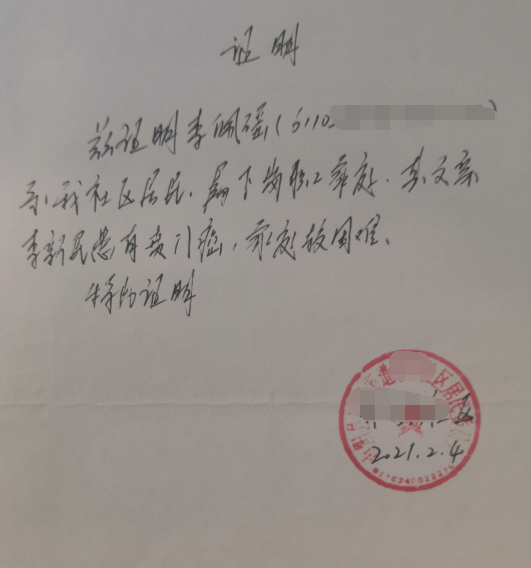 证明
兹证明李佩瑶(6110
系我社区居民，属下岗职工家庭，其父亲
李新民患有贲门癌，家庭较困难、
特此证明
区居民
社区
2021.2.4